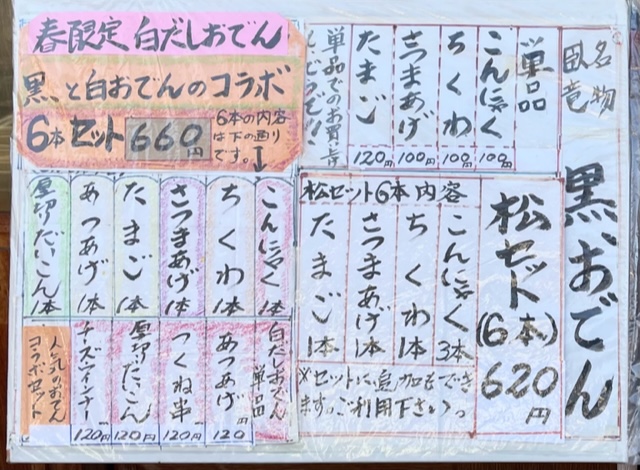 名物
臥竜
黒、おでん
単品
こんにゃく 100円
ちくわ 100円
さつまあげ 100円
たまご 120円
単品でのお買い
松セット(6本)
620円
松セット6本内容
こんにゃく 3本
ちくわ 1本
さつまあげ 1本
たまご 1本
※セットに追加もでき
ます。ご利用下さいっ
春限定 白だしおでん
黒と白おでんのコラボ
6本セット 660円
6本の内容
は下の通り
です。↓
こんにゃく 1本
ちくわ 1本
さつまあげ 1本
たまご 1本
あつあげ 1本
厚切だいこん 1本
白だしおでん
単品
あつあげ 120円
つくね串 120円
厚切だいこん 120円
チーズウィンナー 120円
人気のおでん
コラボセット